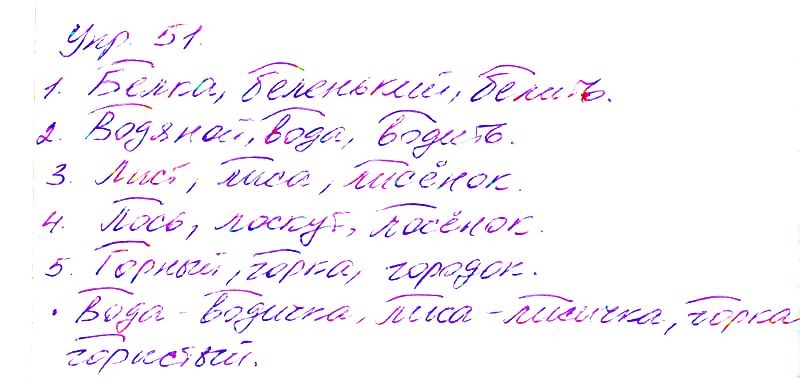 Упр. 51.
1. Белка, беленький, белить.
2. Водяной, вода, водить.
3. Лист, лиса, лисёнок.
4. Лось, лоскут, лосёнок.
5. Горный, горка, городок.
• Вода - водичка, лиса - лисичка, горка
гористый.